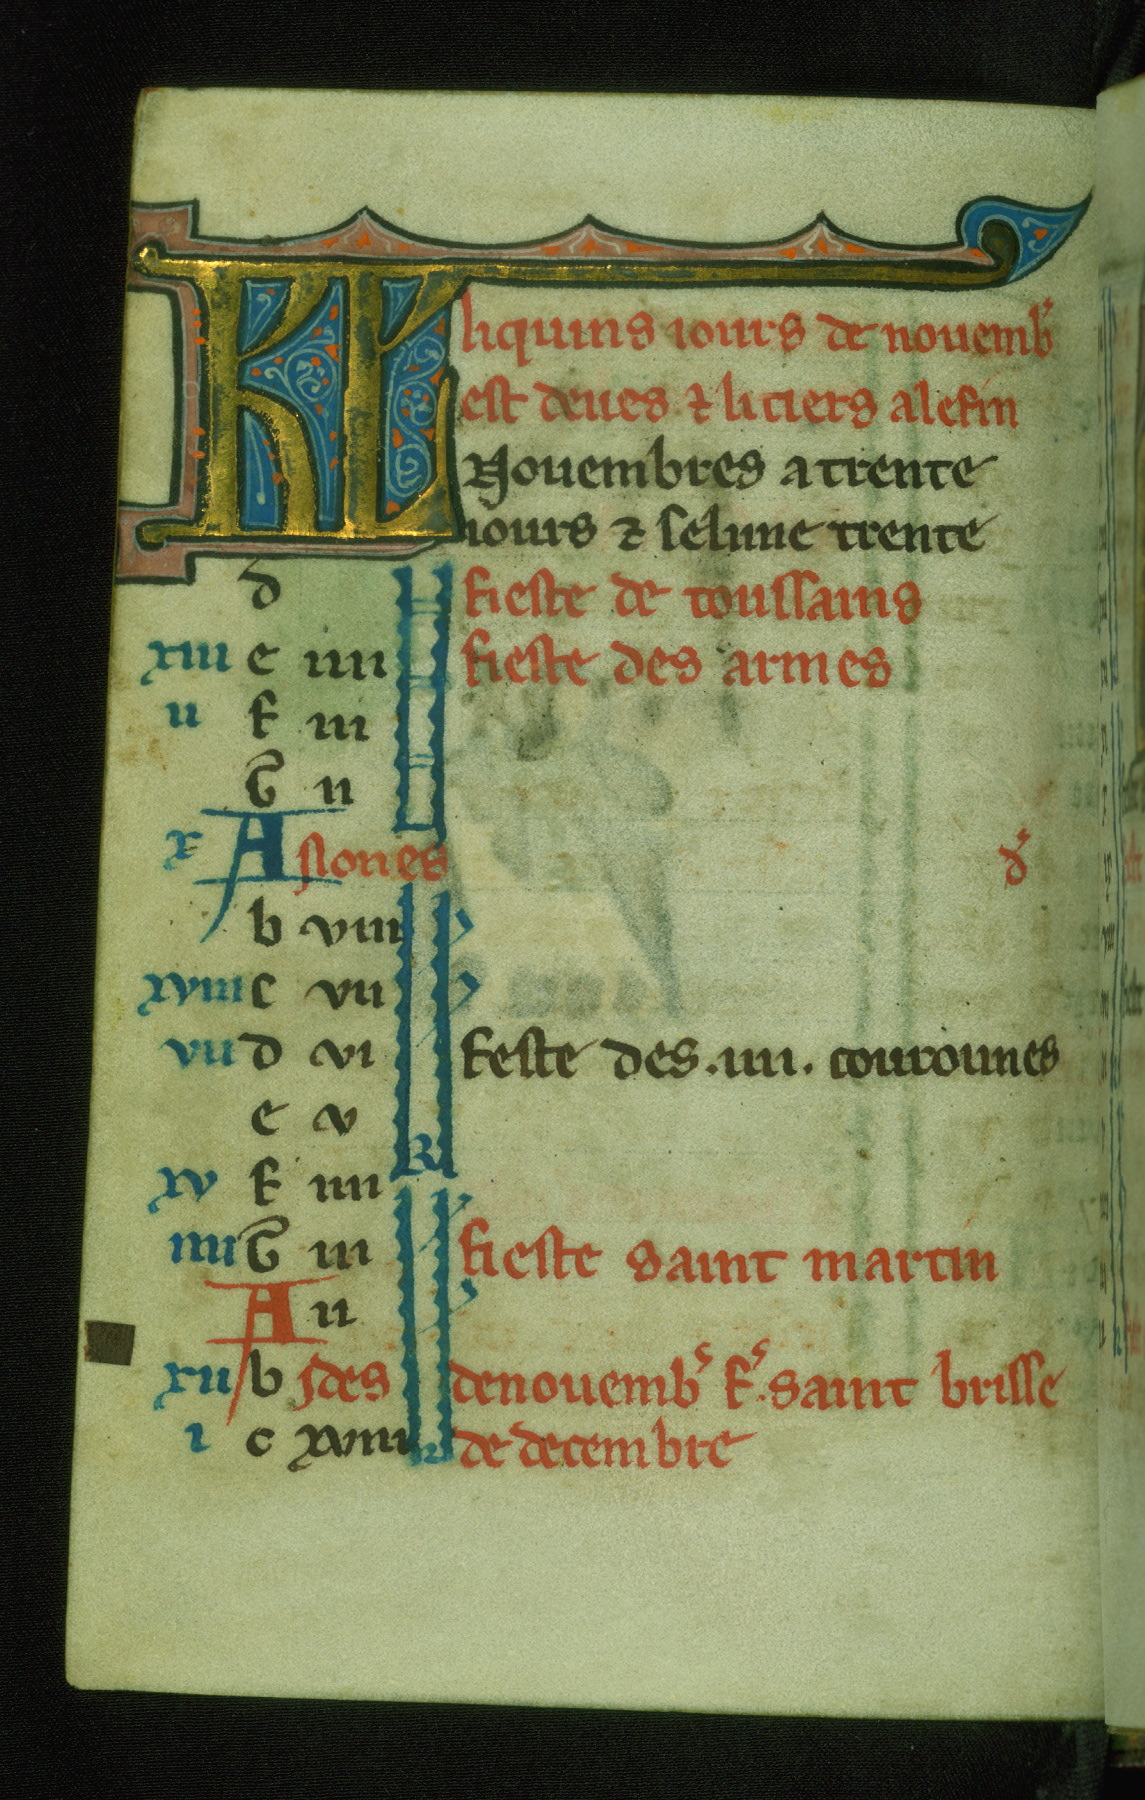 KL li quins iours de nouemb'
est deues ⁊ li ciers a le fin
Nouembres a trente
iours ⁊ se lune trente
d fieste de toussains
xiii e iiii fieste des armes
ii f iii
G ii
x A Nones d'
b viii
xviii c vii
vii d vi Feste des .iiii. courounes
e v
xv f iiii
iiii G iii fieste saint martin
A ii
xii b Jdes de nouemb' f'. saint brisse
i c xviii de decembre